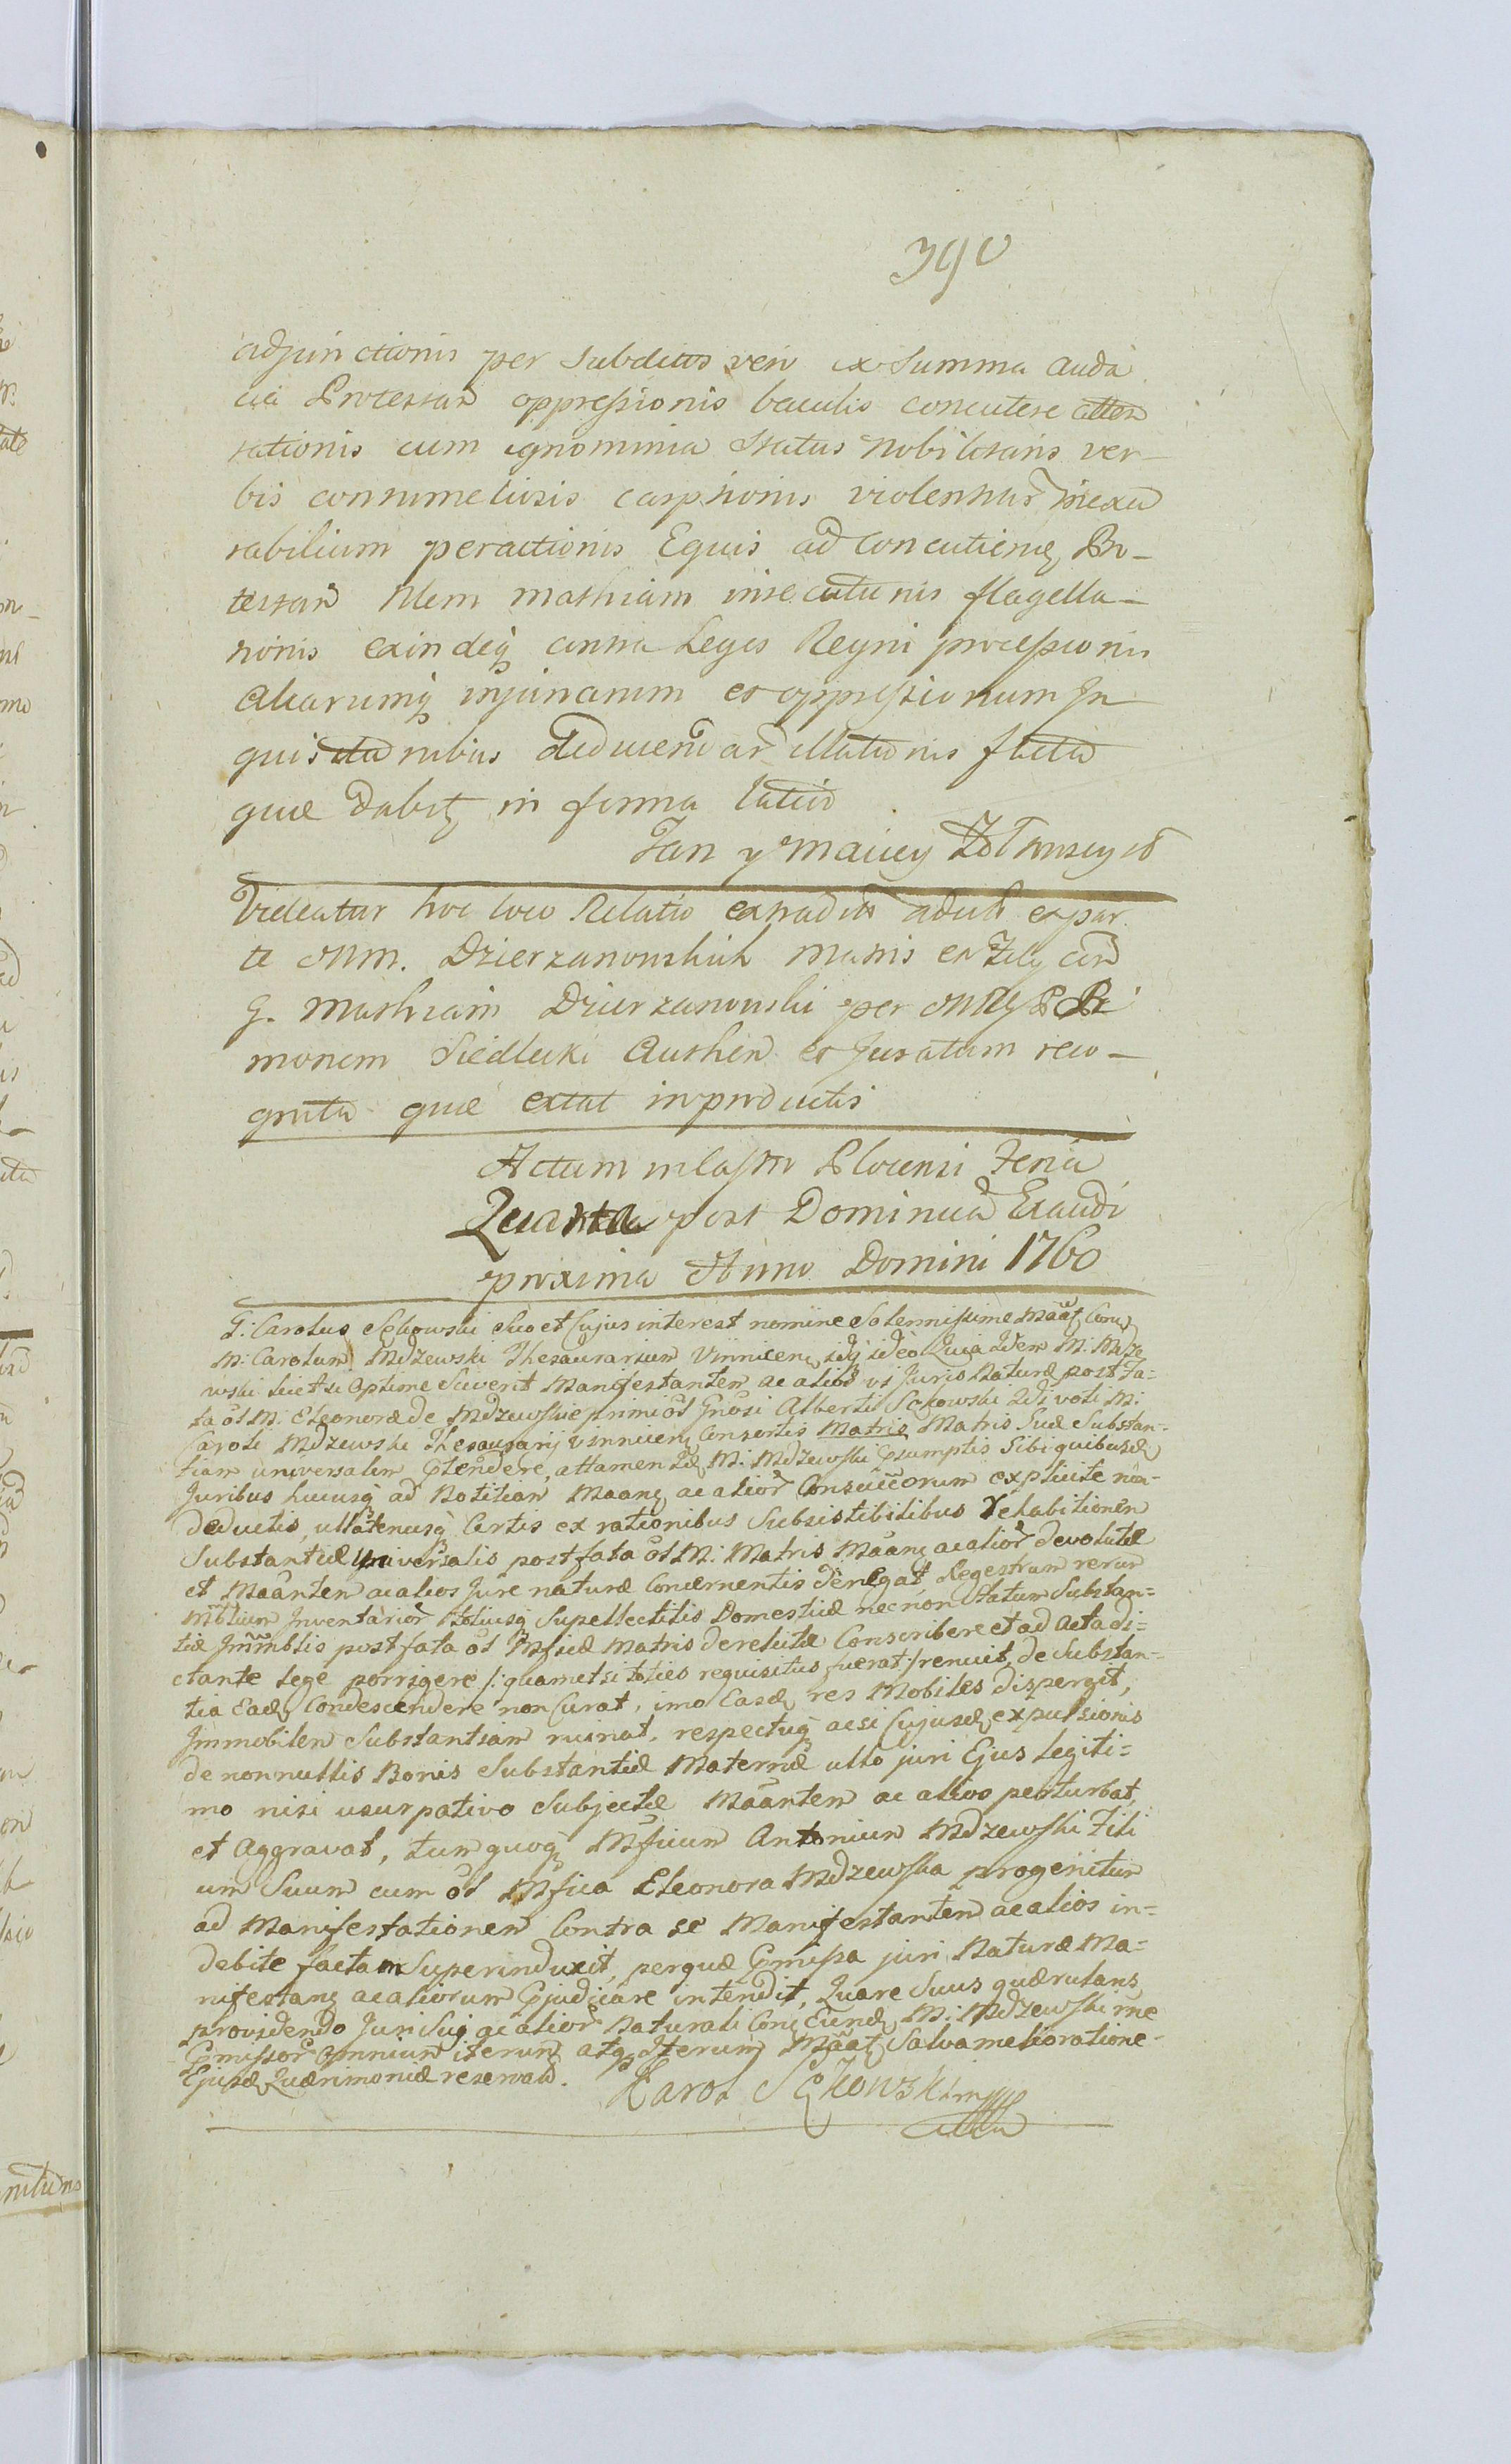 390
adjunctionis per Subditos vero ex Summa auda
cia Protestan oppressionis baculis concutere atten
tationis cum ignominia Status Nobilitaris ver-
bis contumeliosis carptionis violentiar inexu
rabilium peractionis Equis ad concutien Pro-
testan Nlem Mathiam insecutionis flagella-
tionis exindeq contra Leges Regni processionis
aliarumq injuriarum et oppressionum In
quisitionibus deducendar illationis facta
quæ dabit in forma latiori
Jan y Maciey
Videatur hoc loco Relatio extraditi aducit ex par
te MM. Dzierzanowskich Matris et Filij con
G. Mathiam Dzierzanowski per
monem Siedlecki Authen et Juratum reco-
gnita quæ extat in productis
Actum in Castro Plocensi Feria
Quarta post Dominicā Exaudi
proxima Anno Domini 1760
G: Carolus Sękowski Suo et Cujus interest nomine Solennissime Māat Con
M: Carolum Mdzewski Thesaurarium Vinnicen, idq ideo Quia Idem M: Mdze
wski licet se Optime Sciverit Manifestantem ac alios vi Juris Naturæ post Fa-
ta ol M: Eleonoræ de Mdzewskie primi ol Gnosi Alberti Sękowski 2di voti M:
Caroli Mdzewski Thesaurarij Vinnicen Consortis Matris Matris Suæ Substan-
tiam universalem Ptendere, attamen Id M: Mdzewski Psumptis Sibi quibusd
Juribus hucusq ad Notitian Maang ac alior Consuccorum explicite non
deductis, ullatenusq Certis ex rationibus Subsistibilibus rehabitionem
Substantiæ Universalis post fata ol M: Matris Maang ac alior devolutæ
et Maanten ac alios Jure naturæ Concernentis denegat, Regestrum rerum
Mbilium Inventarior totiusq Supellectilis Domesticæ necnon Statum Substan=
tiæ Immblis post fata ol Mficæ Matris derelictæ Conscribere et ad Acta di=
ctante Lege porrigere /: quametsi toties requisitus fuerat :/ renuit, de Substan-
tia Ead Condescendere non Curat, imo Easd res Mobiles dispergit,
Immobilem Substantiam ruinat, respectuq ac si Cujusd expulsionis
de nonnullis Bonis Substantiæ Maternæ ullo juri Ejus Legiti=
mo nisi usurpativo Subjectæ Maanten ac alios perturbat,
et Aggravat, tum quoq Mficum Antonium Mdzewski Fili
um Suum cum ol Mfica Eleonora Mdzewska progenitum
ad Manifestationem Contra se Manifestantem ac alios in=
debite factam Superinduxit, per quæ Pmissa juri Naturæ Ma=
nifestang ac aliorum Pjudicare intendit, Quare Suus quærulans,
providendo Juri Suo ac alior Naturali Con Eund M: Mdzewski rne
Pmissor omnium iterum atq Iterum Māat Salva melioratione
Ejusd Quærimoniæ reservata.
Karol Sękowski mpp